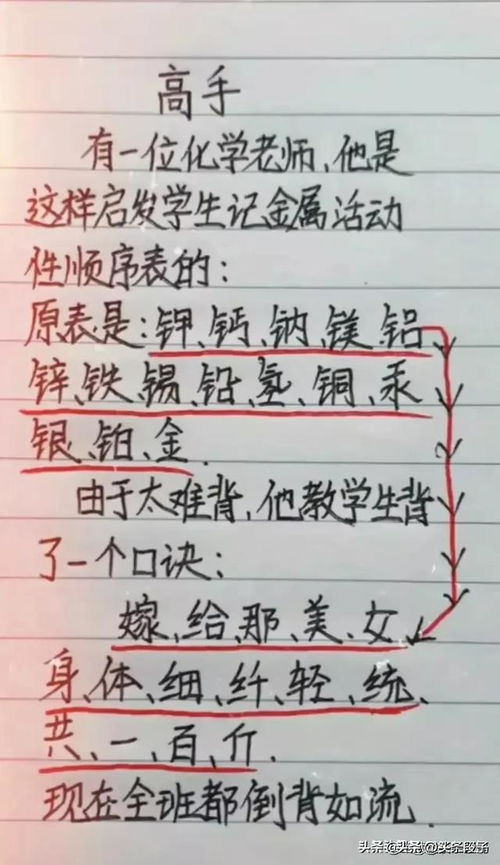 高手
有一位化学老师,他是
这样启发学生记金属活动
性顺序表的:
原表是:钾、钙、钠、镁、铝
锌、铁、锡、铅、氢、铜、汞
银、铂、金.
由于太难背,他教学生背
了一个口诀:
嫁、给、那、美、女
身、体、细、纤、轻、统、
共、一、百、斤.
现在全班都倒背如流.